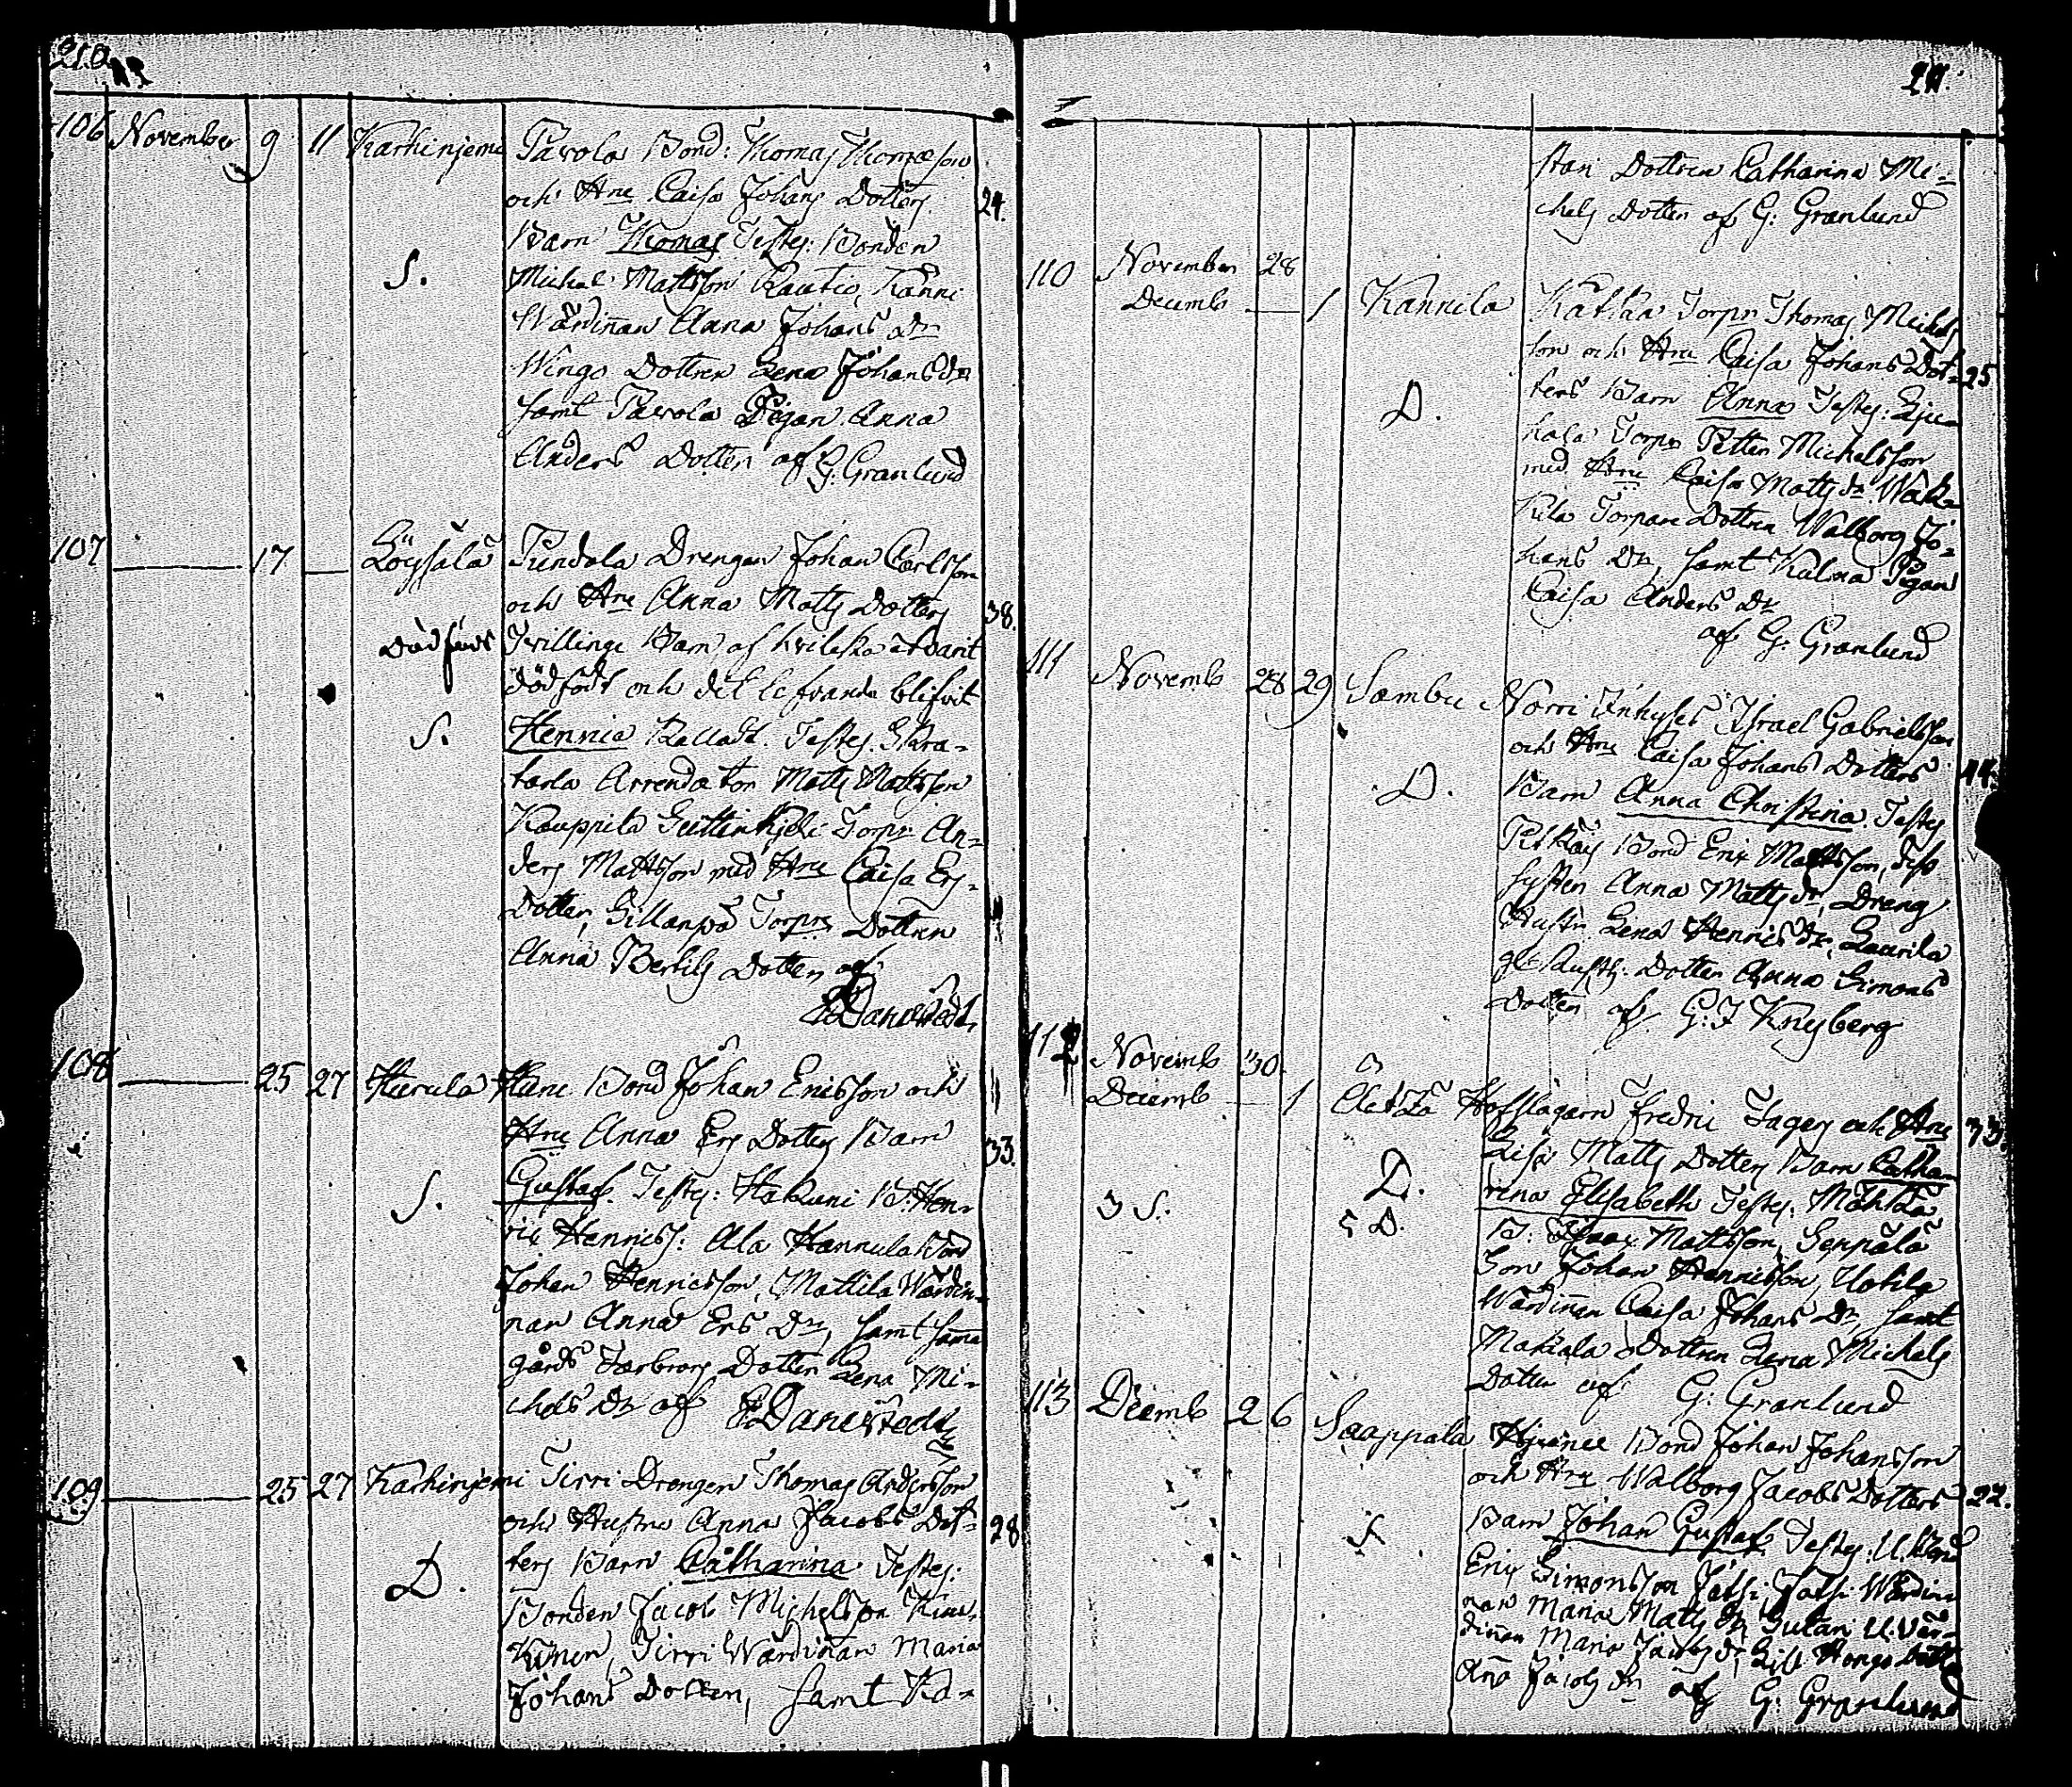 210
106 November 9 11 Karhinjemi Pavola Bond: Thomas Thomæson
och Hru Caisa Johans Dotters 24.
Barn Thomas Testes: Bonden
S. Michel Mattsson Rautio, Kanni
Wärdinnan Anna Johans Dr
Wingo Dottren Lena Johans Dr
samt Pavola Pigan Anna
Anders Dotter af G: Granlund
107 17 Löysälä Pundola Drengen Johan Carlsson
och Hru Anna Matts Dotters 38.
Död född Tvillinge Barn af hvilka et varit
dödfödt och det lefvande blifvit
S. Hennic kalladt. Testes. Skra-
tarla Arrendator Matts Mattsson
Kauppila Torpr An-
ders Mattsson med Hru Caisa Ers
Dotter, Sillanpä Torpre Dottren
Anna Bertils Dotter af
Danelstedt
108 25 27 Hurula Hane Bond Johan Ericsson och
Hru Anna Ers Dotters Barn 33.
S. Gustaf. Testes: Hakuni B. Hen-
ric Henricss: Ala Hannula Bond
Johan Henricsson, Mattila Wärdin-
nan Anna Ers Dr, samt samma
gårds Dotter Lena Mi-
chels Dr af Danelstedt
109 25 27 Karhinjemi Tirri Drengen Thomas Andersson
och Hustru Anna Jacobs Dot- 28
ters Barn Catharina Testes:
D. Bonden Jacob Michelsson Kiu-
Kinen, Tirri Wärdinnan Maria
Johans Dotter, samt Ka-
211.
stari Dottren Catharina Mi-
chels Dotter af G: Granlund
110 November 28
Decemb 1 Kannila Katka Torpr Thomas Michels
son och Hru Caisa Johans Dot- 25
D. ters Barn Anna Testes: Liju-
kala Torpr Petter Michelsson
med Hru Caisa Matts Dr Wak-
kila Torpare Dottren Walborg Jo-
hans Dr, samt Kalma Pigan
Caisa Anders Dr
af G: Granlund
111 Novemb 28 29 Sambu Norri Inhyses Israel Gabrielsson
och Hru Caisa Johans Dotters 44.
D. Barn Anna Christina. Testes
Bond Eric Mattsson, dess
syster Anna Matts dr, Dreng
Hustr: Lena Henrics dr, Laurila
Dotter Anna Simons
Dotter af G: J Knyberg
112 Novemb 30.
Decemb 1 Äetsä Hofslagarn Fredric Jager och Hru 33.
D. Lisa Matts Dotters Barn Catha-
3 S. 5 D. rina Elisabeth Testes: Mähkä
B: Isaac Mattsson, Seppälä
Son Johan Henricsson, Uotila
Wärdinnan Caisa Johans Dr, samt
Makala Dottren Lena Michels
Dotter af G: Granlund
113 Decemb 2 6 Saappala Bond Johan Johansson
och Hru Walborg Jacobs Dotters 22.
S Barn Johan Gustaf Testes: U. Bond
Eric Simonsson Wärdin
nan Maria Matts Dr U. Vär-
dinnan Maria Jacobs dr,
Ana Jacobs Dr af G: Granlund